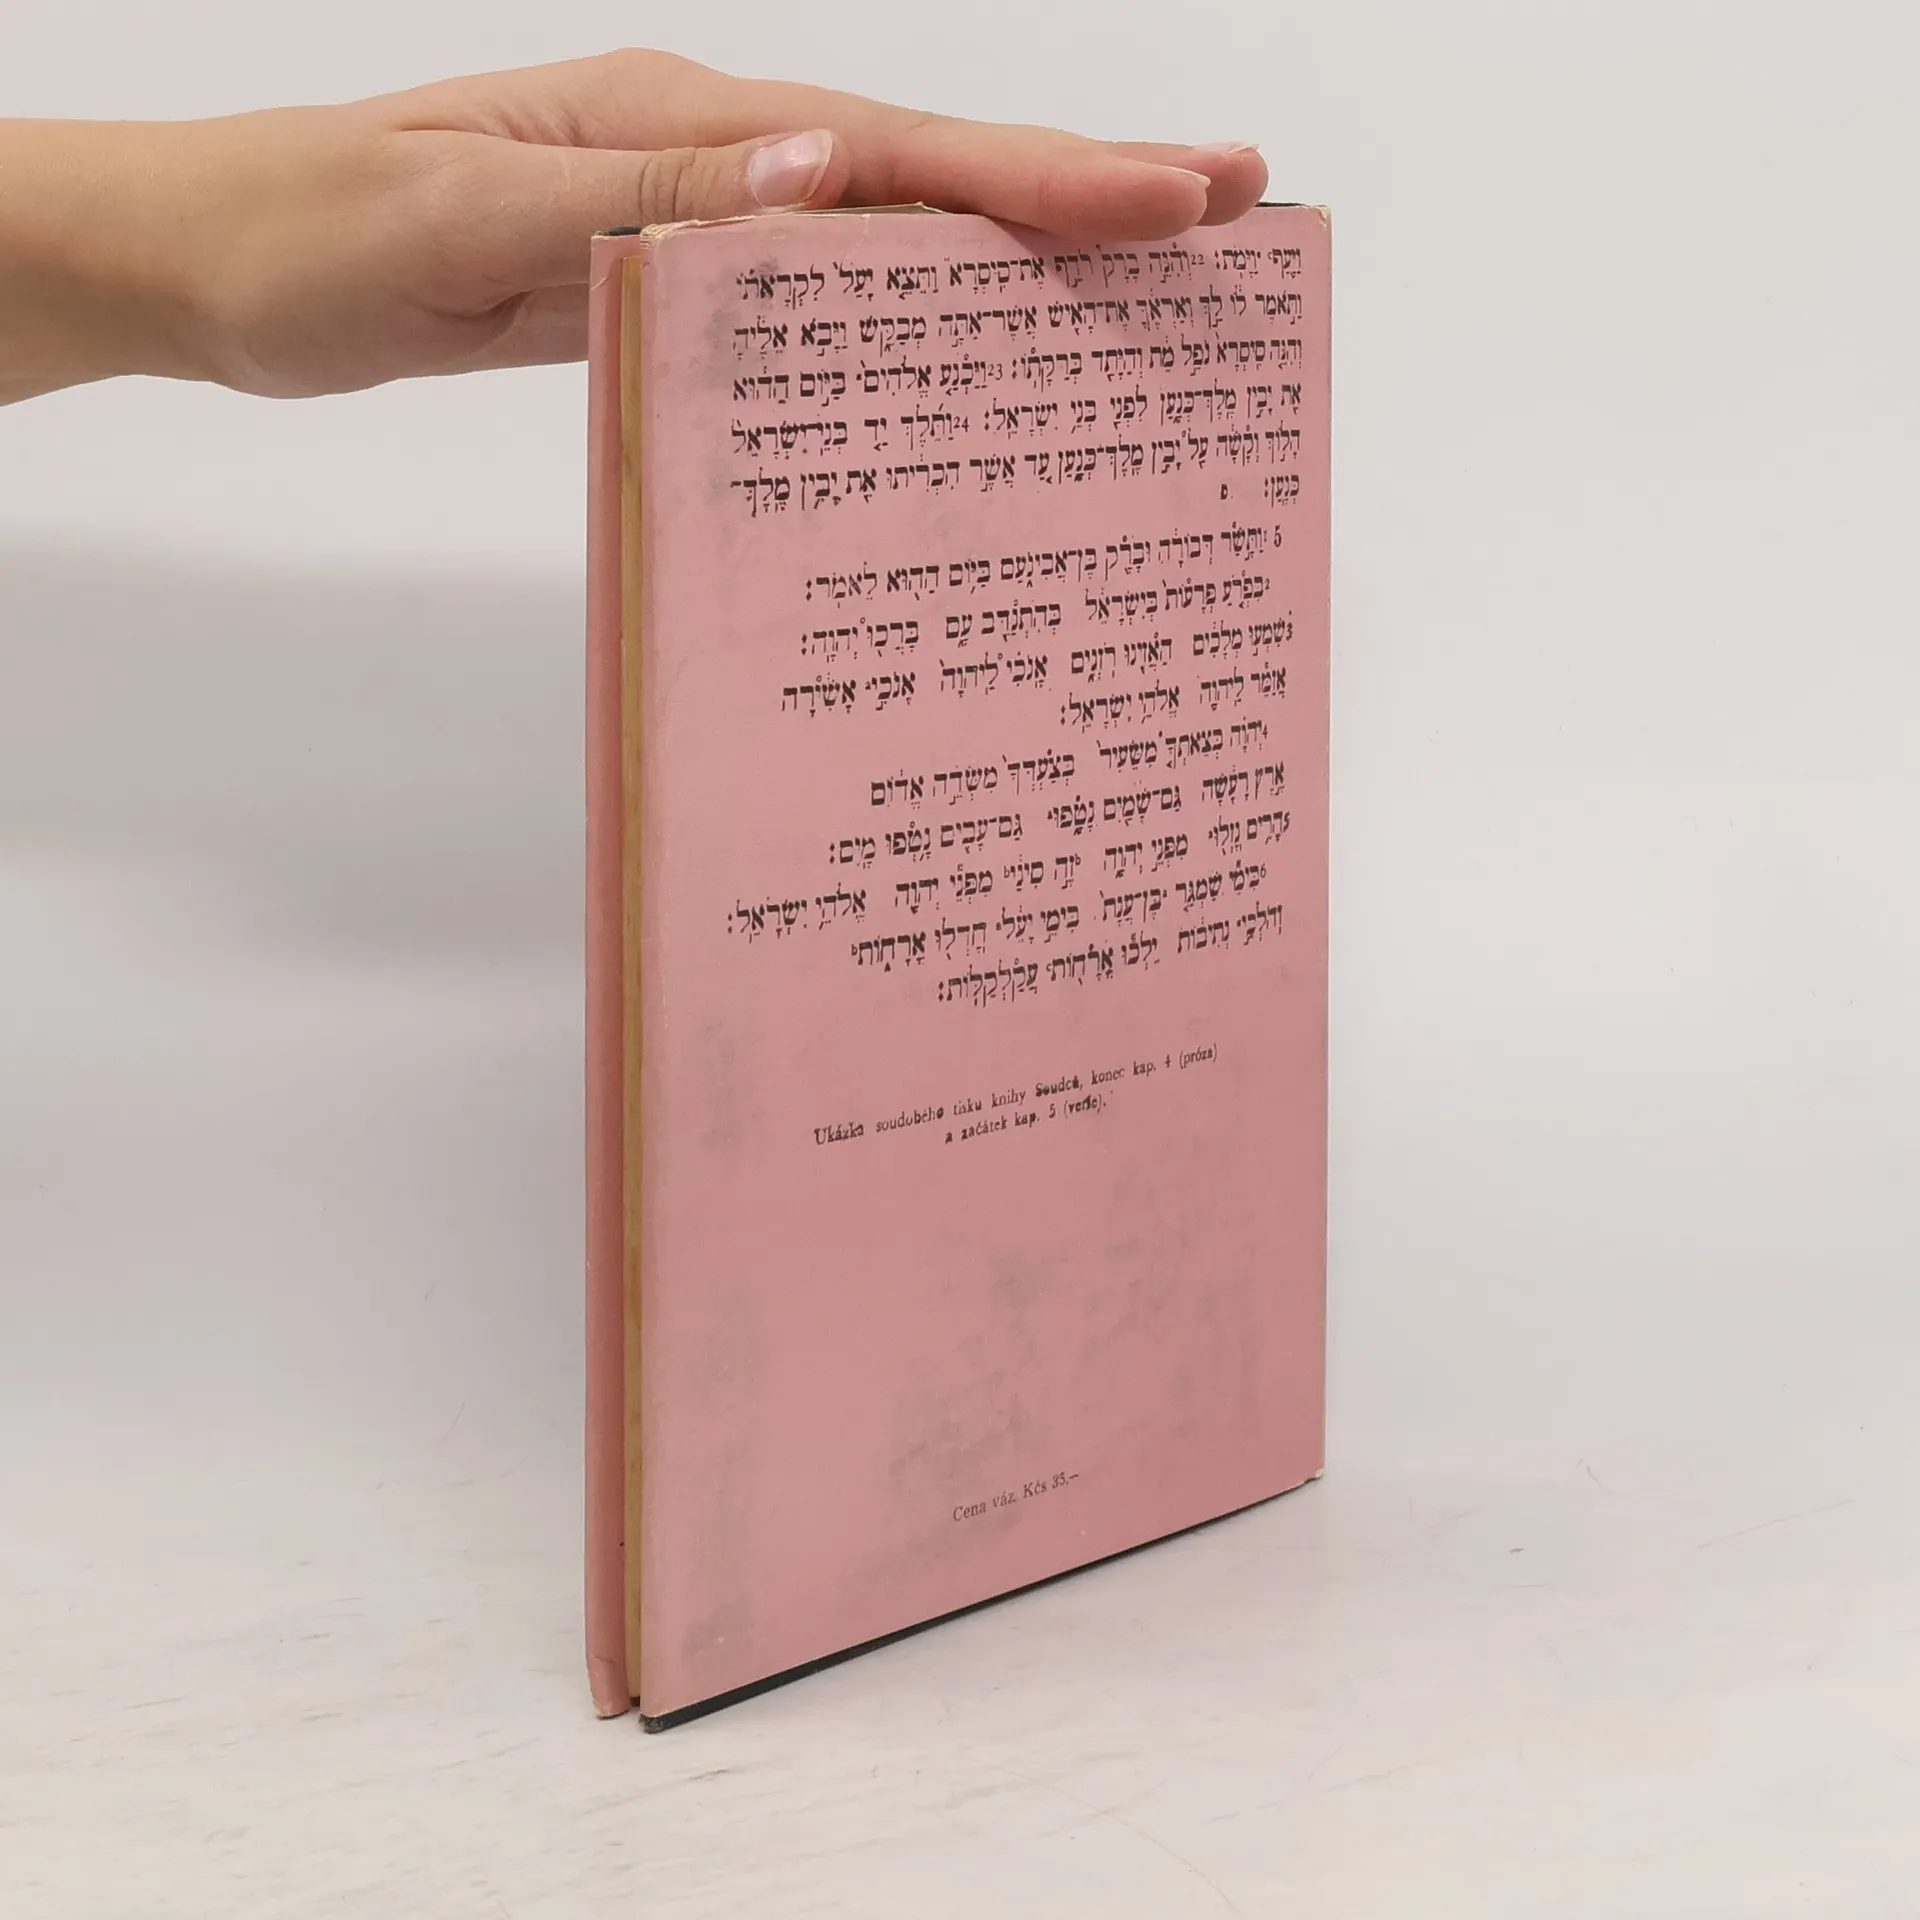 וַיָּ֖עַף וַיָּמֹֽת׃ 22וְהִנֵּ֣ה בָרָק֮ רֹדֵ֣ף אֶת־סִֽיסְרָא֒ וַתֵּצֵ֤א יָעֵל֙ לִקְרָאתֹ֔ו
וַתֹּ֣אמֶר לֹ֔ו לֵ֣ךְ וְאַרְאֶ֔ךָּ אֶת־הָאִ֖ישׁ אֲשֶׁר־אַתָּ֣ה מְבַקֵּ֑שׁ וַיָּבֹ֣א אֵלֶ֔יהָ
וְהִנֵּ֤ה סִֽיסְרָא֙ נֹפֵ֣ל מֵ֔ת וְהַיָּתֵ֖ד בְּרַקָּתֹֽו׃ 23וַיַּכְנַ֤ע אֱלֹהִים֙ בַּיֹּ֣ום הַה֔וּא
אֵ֖ת יָבִ֣ין מֶֽלֶךְ־כְּנָ֑עַן לִפְנֵ֖י בְּנֵ֥י יִשְׂרָאֵֽל׃ 24וַתֵּ֜לֶךְ יַ֤ד בְּנֵֽי־יִשְׂרָאֵל֙
הָלֹ֣וךְ וְקָשָׁ֔ה עַ֖ל יָבִ֣ין מֶֽלֶךְ־כְּנָ֑עַן עַ֚ד אֲשֶׁ֣ר הִכְרִ֔יתוּ אֵ֖ת יָבִ֥ין מֶֽלֶךְ־
כְּנָֽעַן׃ פ
5 1וַתָּ֣שַׁר דְּבֹורָ֔ה וּבָרָ֖ק בֶּן־אֲבִינֹ֑עַם בַּיֹּ֥ום הַה֖וּא לֵאמֹֽר׃
2בִּפְרֹ֤עַ פְּרָעֹות֙ בְּיִשְׂרָאֵ֔ל בְּהִתְנַדֵּ֖ב עָ֑ם בָּרֲכ֖וּ יְהוָֽה׃
3שִׁמְע֣וּ מְלָכִ֔ים הַאֲזִ֖ינוּ רֹֽזְנִ֑ים אָֽנֹכִ֗י לַֽיהוָה֙ אָנֹכִ֣י אָשִׁ֔ירָה
אֲזַמֵּ֕ר לַֽיהוָ֖ה אֱלֹהֵ֥י יִשְׂרָאֵֽל׃
4יְהוָ֗ה בְּצֵאתְךָ֤ מִשֵּׂעִיר֙ בְּצַעְדְּךָ֙ מִשְּׂדֵ֣ה אֱדֹ֔ום
אֶ֣רֶץ רָעָ֔שָׁה גַּם־שָׁמַ֖יִם נָטָ֑פוּ גַּם־עָבִ֖ים נָ֥טְפוּ מָֽיִם׃
5הָרִ֥ים נָזְל֖וּ מִפְּנֵ֣י יְהוָ֑ה ᵇזֶ֣ה סִינַ֔יᵇ מִפְּנֵ֕י יְהוָ֖ה אֱלֹהֵ֥י יִשְׂרָאֵֽל׃
6בִּימֵ֞י שַׁמְגַּ֤ר בֶּן־עֲנָת֙ בִּימֵ֣י יָעֵ֔ל חָדְל֖וּ אֳרָחֹ֑ותᵇ
וְהֹלְכֵ֣י נְתִיבֹ֔ות יֵלְכ֕וּ אֳרָחֹ֖ות עֲקַלְקַלֹּֽות׃
Ukázka soudobého tisku knihy Soudců, konec kap. 4 (próza)
a začátek kap. 5 (verše).
Cena váz. Kčs 35,—